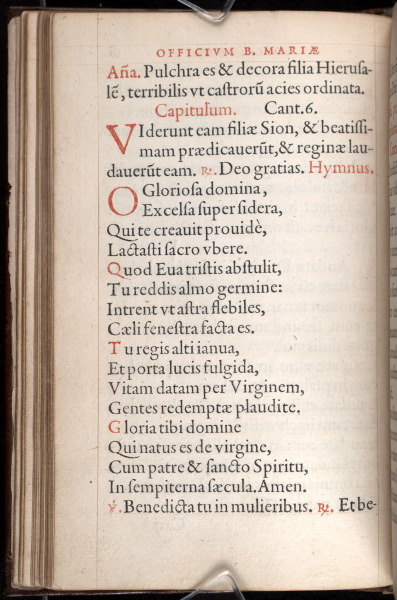 OFFICIVM B. MARIÆ
Aña. Pulchra es & decora filia Hierusa-
lẽ, terribilis vt castrorũ acies ordinata.
Capitulum. Cant.6.
VIderunt eam filiæ Sion, & beatissi-
mam prædicauerũt, & reginæ lau-
dauerũt eam. ℟. Deo gratias. Hymnus.
O Gloriosa domina,
Excelsa super sidera,
Qui te creauit prouidè,
Lactasti sacro vbere.
Quod Eua tristis abstulit,
Tu reddis almo germine:
Intrent vt astra flebiles,
Cæli fenestra facta es.
Tu regis alti ianua,
Et porta lucis fulgida,
Vitam datam per Virginem,
Gentes redemptæ plaudite.
Gloria tibi domine
Qui natus es de virgine,
Cum patre & sancto Spiritu,
In sempiterna sæcula. Amen.
℣. Benedicta tu in mulieribus. ℟. Et be-